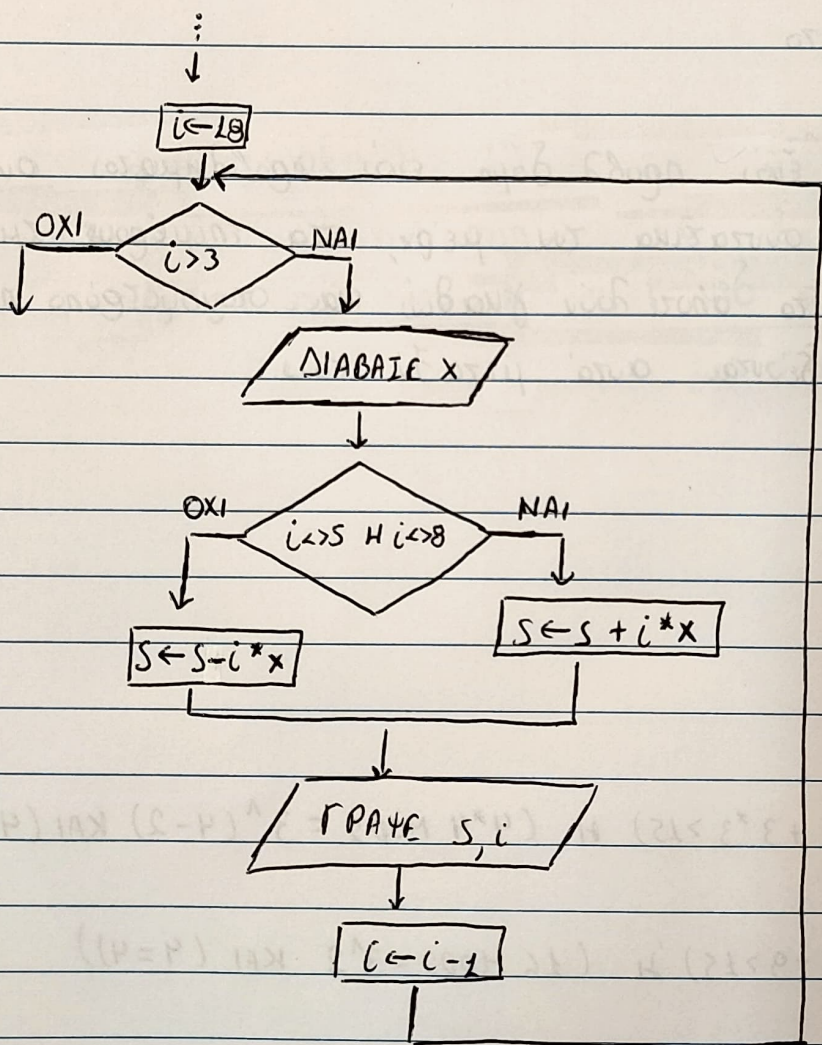 i←18
ΟΧΙ
i>3
ΝΑΙ
ΔΙΑΒΑΣΕ X
ΟΧΙ
i<>5 Η i<>8
ΝΑΙ
S←S-i*x
S←S+i*x
ΓΡΑΨΕ S,i
i←i-1